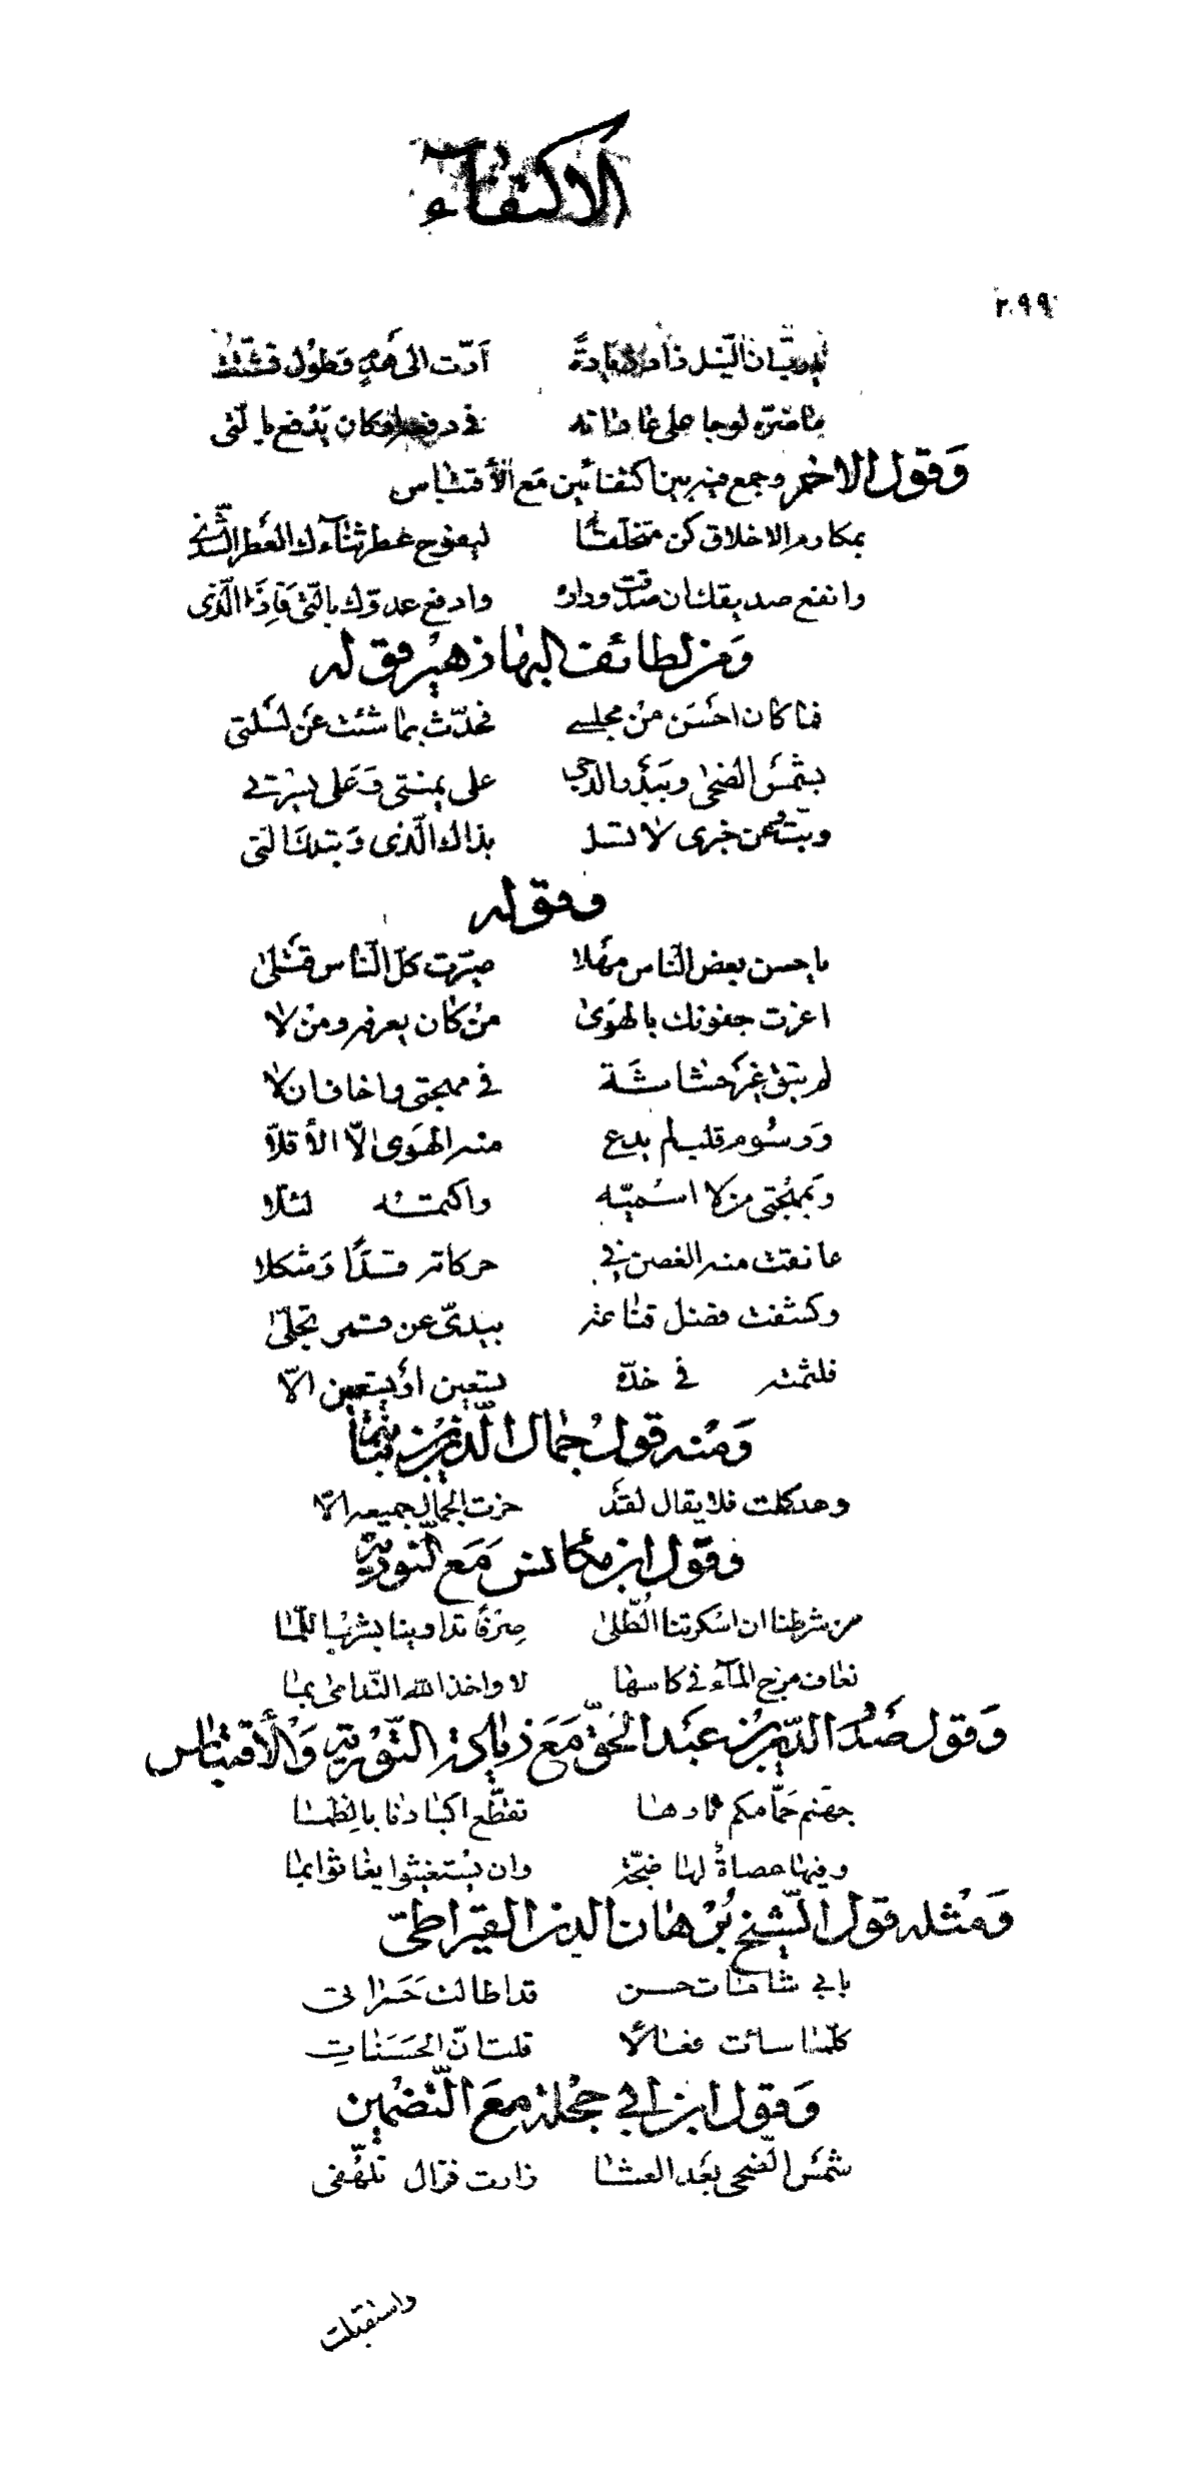 الاكتفاء
٢٩٩
النيل ذا زيادة ادّت الى هدم وطول تشتّت
ما ضرّه لو جا على عاداته في دفعه او كان يدفع بالّتى
وقول الاخر وجمع فيه بين اكتفائين مع الأقتباس
بمكارم الاخلاق كن متخلّقا ليفوح عطر ثناءك العطر الشّذى
وانفع صديقك ان صدقت وداده وادفع عدوّك بالّتى فاذا الّذى
ومن لطائف البها زهير قوله
فما كان احسن من مجلسى فحدّث بما شئت عن ليلتى
بشمس الضحى وببدر الدجى على يمنتى وعلى يسرتى
وبتّ وعن خبرى لا تسل بذاك الّذى وبتلك التى
وقوله
يا حسن بعض النّاس مهلا صيّرت كلّ النّاس قتلى
اغرت جفونك بالهوى من كان يعرفه ومن لا
لم تبق غير حشاشة في مهجتى واخاف ان لا
ورسوم قلب لم يدع منه الهوى الّا الأقلّا
وبمهجتى من لا اسميّه واكتمته لئلا
عانقت منه الغصن في حركاته قدّا وشكلا
وكشفت فضل قناعه بيدىّ عن قمر تجلّى
فلثمته في خدّه تسعين او تسعين الّا
ومنه قول جمال الدّين بن نباتة
وحد كملت فلا يقال لقد حزت الجمال جميعه الّا
وقول ابن مكانس مع التّورية
من شرطنا ان اسكرتنا الطّلى صرفا تداوينا بشرب اللّما
نعاف مزج المآء في كاسها لا واخذ الله النّدامى بما
وقول صدر الدّين بن عبد الحقّ مع زيادة التّورية والأقتباس
جهنم حمّامكم نارها تقطّع اكبادنا بالظما
وفيها عصاة لها ضجّة وان يستغيثوا يغاثوا بما
ومثله قول الشّيخ برهان الدين القيراطىّ
بابي شامات حسن قد اطالت حسراتى
كلّما سائت فعالا قلت انّ الحسنات
وقول ابن ابي حجلة مع التّضمين
شمس الضحى بعد العشا زارت فزال تلهّفى
واستقبلت